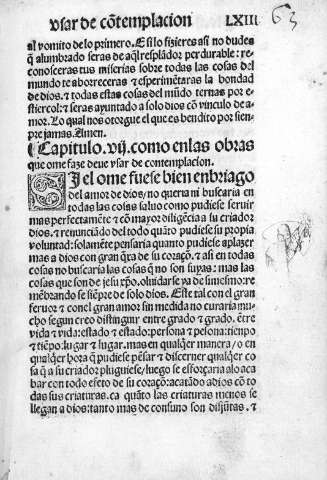 vsar de cõtemplacion LXIII 63
al vomito de lo primero. E si lo fizieres asi no dudes
q̃ alumbrado seras de aq̃l resplãdor perdurable: re
conosceras tus miserias sobre todas las cosas del
mundo te aborreceras & esperimẽtaras la bondad
de dios. & todas estas cosas del mũdo ternas por es
tiercol: & seras ayuntado a solo dios cõ vinculo de a-
mor. Lo qual nos otorgue el que es bendito por sien-
pre jamas. Amen.
¶ Capitulo. vij. como enlas obras
que ome faze deue vsar de contemplacion.
SI el ome fuese bien enbriago
del amor de dios / no querria ni buscaria en
todas las cosas saluo como pudiese seruir
mas perfectamẽte & cõ mayor diligẽcia a su criador
dios. & renunciãdo del todo quãto pudiese su propia
voluntad: solamẽte pensaria quanto pudiese aplazer
mas a dios con gran q̃xa de su coraçõ. & asi en todas
cosas no buscaria las cosas q̃ no son suyas: mas las
cosas que son de jesu xp̃o. oluidarse ya de simesmo: re
mẽbrando se siẽpre de solo dios. Este tal con el gran
feruor & conel gran amor sin medida no curaria mu-
cho segun creo distinguir entre grado & grado. ẽtre
vida & vida: estado & estado: persona & persona: tienpo
& tiẽpo: lugar & lugar. mas en qualquer manera / o en
qualquer hora q̃ pudiese pẽsar & discerner qualq̃er co
sa q̃ a su criador pluguiese / luego se esforçaria alo aca
bar con todo efeto de su coraçõ: acatãdo a dios cõ to
das sus criaturas. ca quãto las criaturas menos se
llegan a dios: tanto mas de consuno son disjũtas. &